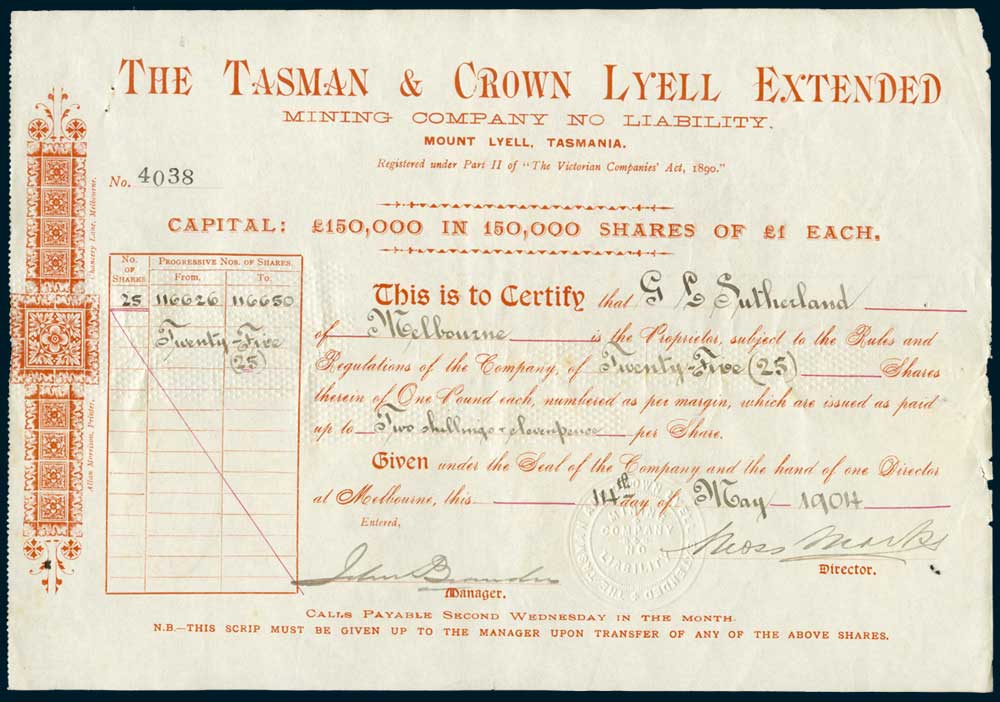 THE TASMAN & CROWN LYELL EXTENDED
MINING COMPANY NO LIABILITY.
MOUNT LYELL, TASMANIA.
Registered under Part II of "The Victorian Companies' Act, 1890."
No. 4038
CAPITAL: £150,000 IN 150,000 SHARES OF £1 EACH.
No. OF SHARES
PROGRESSIVE NOS. OF SHARES.
From. To.
25 116626 116650
Twenty-Five
(25)
This is to Certify that G L Sutherland
of Melbourne is the Proprietor, subject to the Rules and
Regulations of the Company, of Twenty-Five (25) Shares
therein of One Pound each, numbered as per margin, which are issued as paid
up to Two shillings & elevenpence per Share.
Given under the Seal of the Company and the hand of one Director
at Melbourne, this 14th day of May 1904
Entered,
John Brandon
Manager.
Moss Marks
Director.
COMPANY
NO
LIABILITY
CALLS PAYABLE SECOND WEDNESDAY IN THE MONTH.
N.B.—THIS SCRIP MUST BE GIVEN UP TO THE MANAGER UPON TRANSFER OF ANY OF THE ABOVE SHARES.
Allan Morrison, Printer, Chancery Lane, Melbourne.